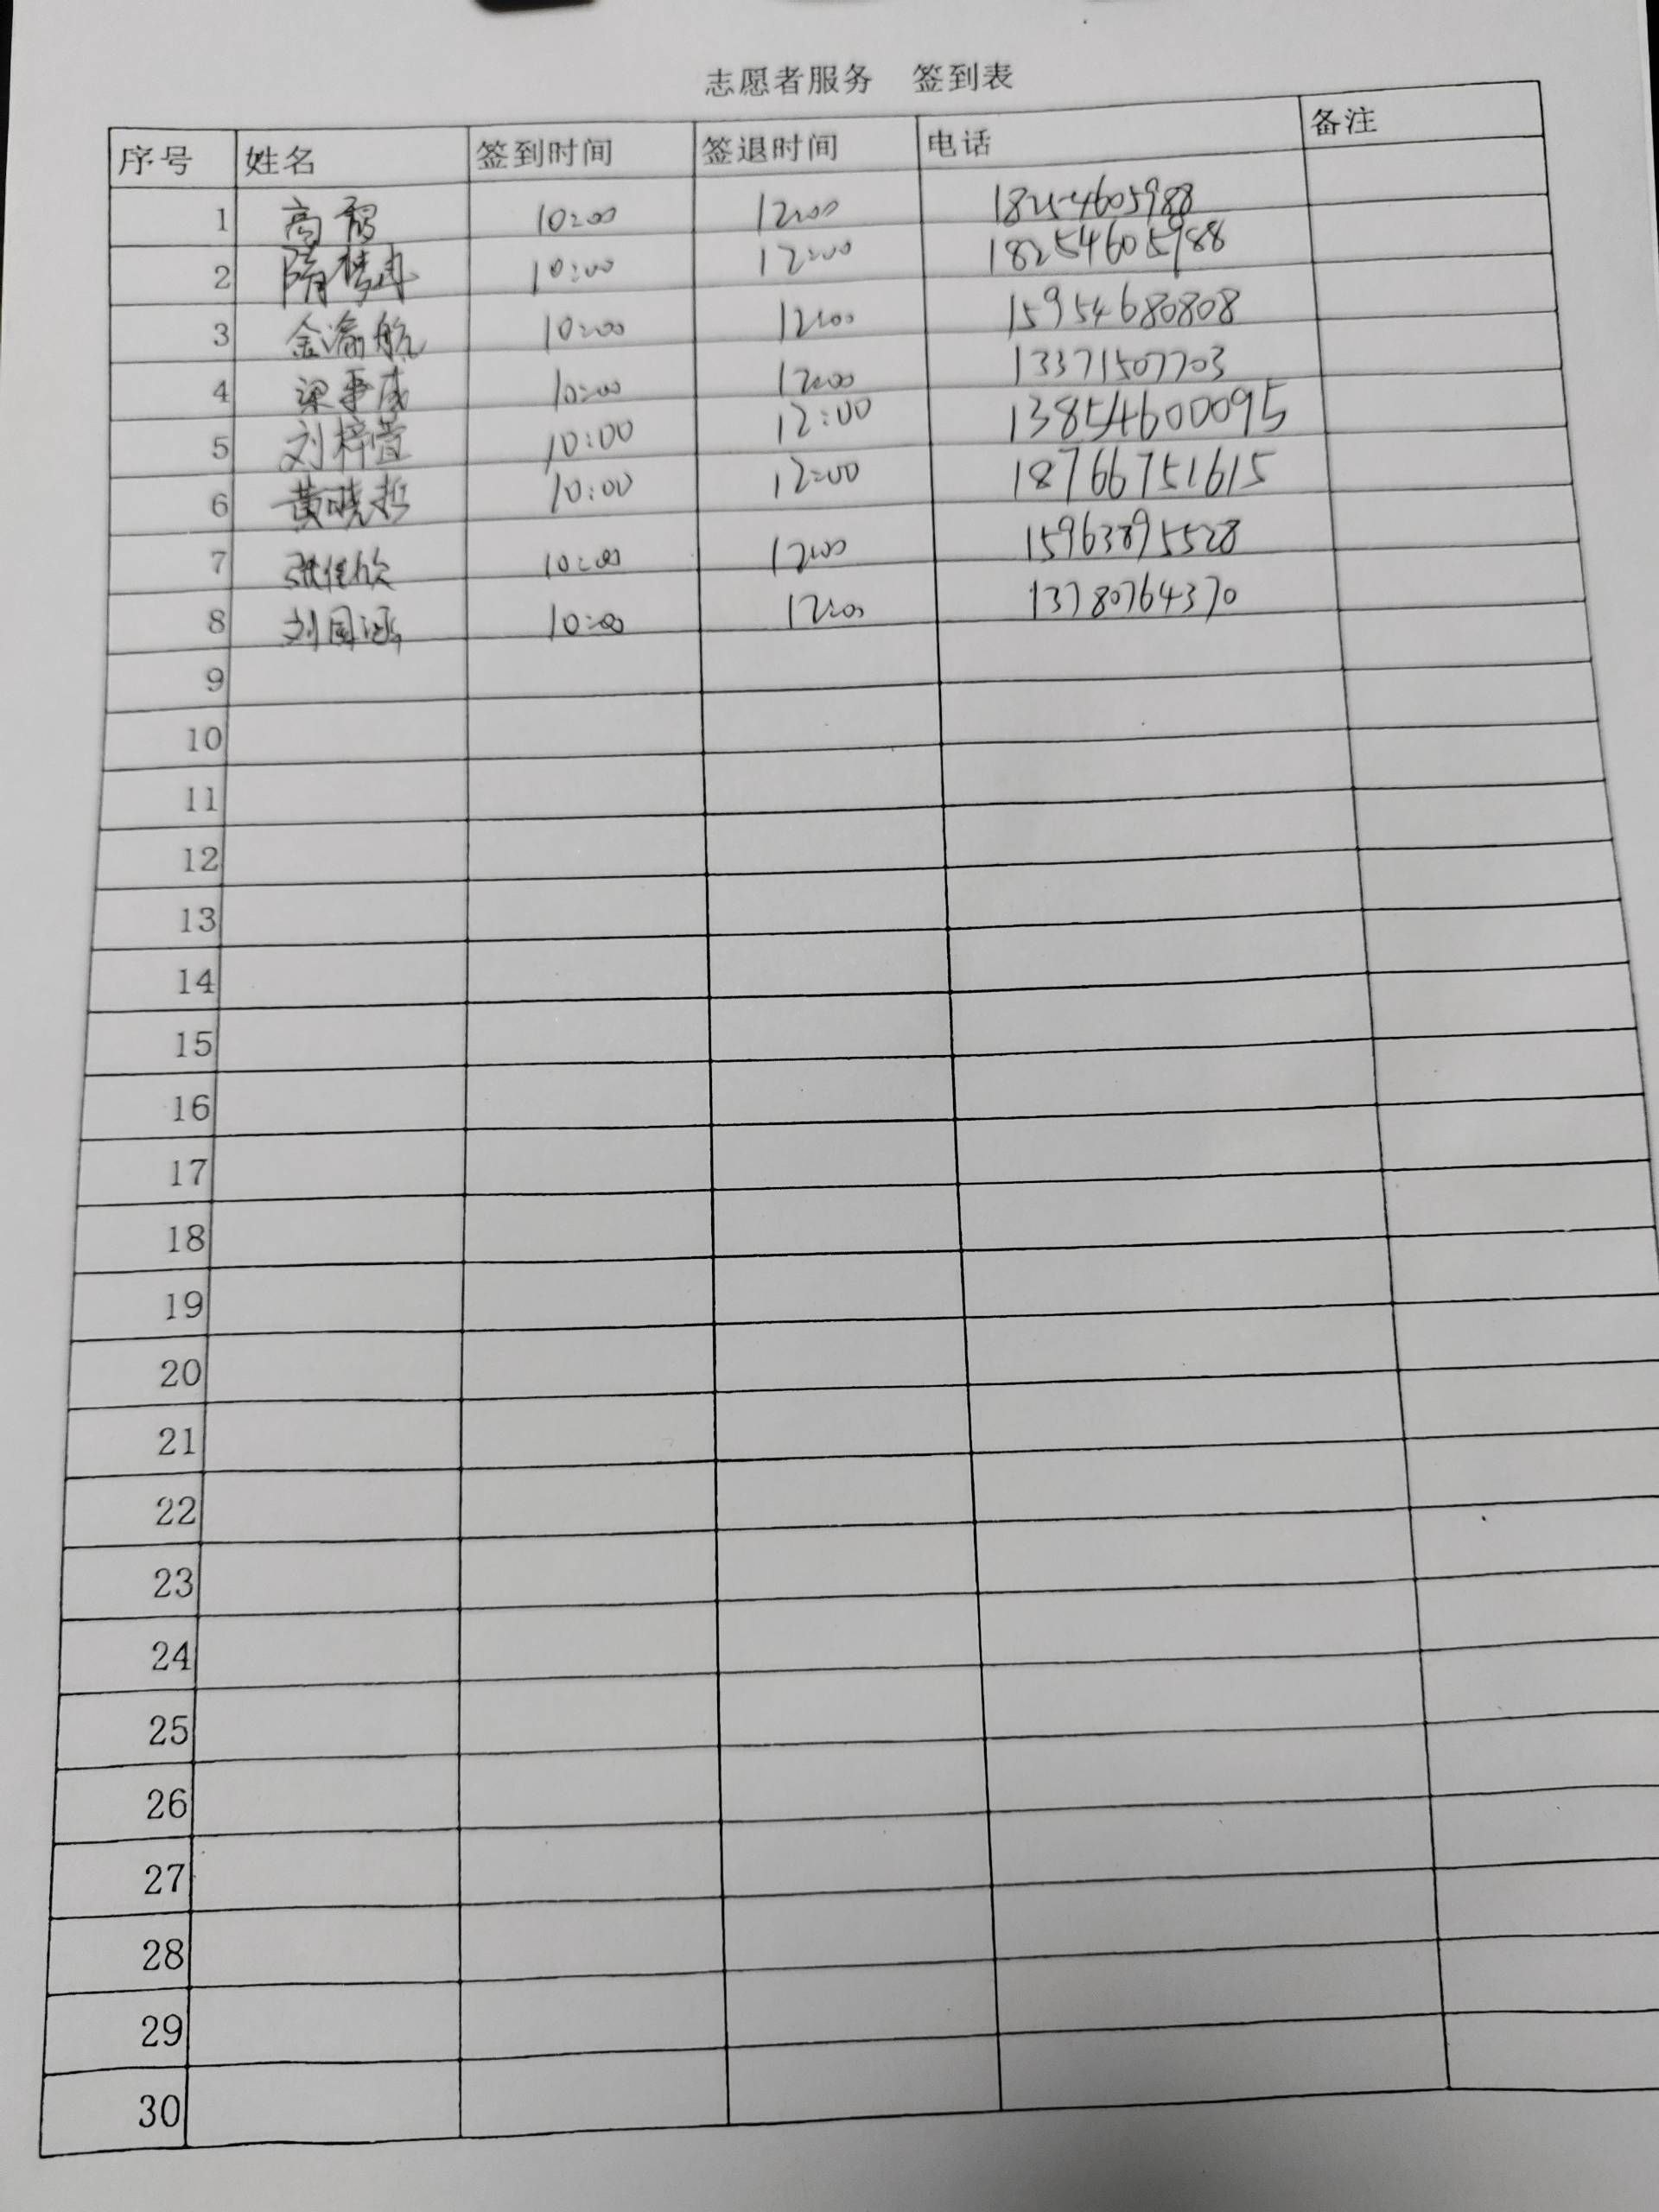 志愿者服务 签到表
序号 姓名 签到时间 签退时间 电话 备注
1 高 10:00 12:00 18254605988
2 隋梦冉 10:00 12:00 18254605988
3 金渝航 10:00 12:00 15954680808
4 10:00 12:00 13371507703
5 刘梓萱 10:00 12:00 13854600095
6 黄晓哲 10:00 12:00 18766751615
7 张佳欣 10:00 12:00 15963895528
8 刘国 10:00 12:00 13780764370
9
10
11
12
13
14
15
16
17
18
19
20
21
22
23
24
25
26
27
28
29
30